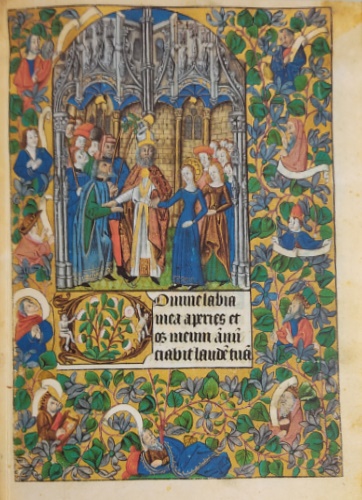 Domine labia
mea aperies et
os meum annū
ciabit laudē tuā